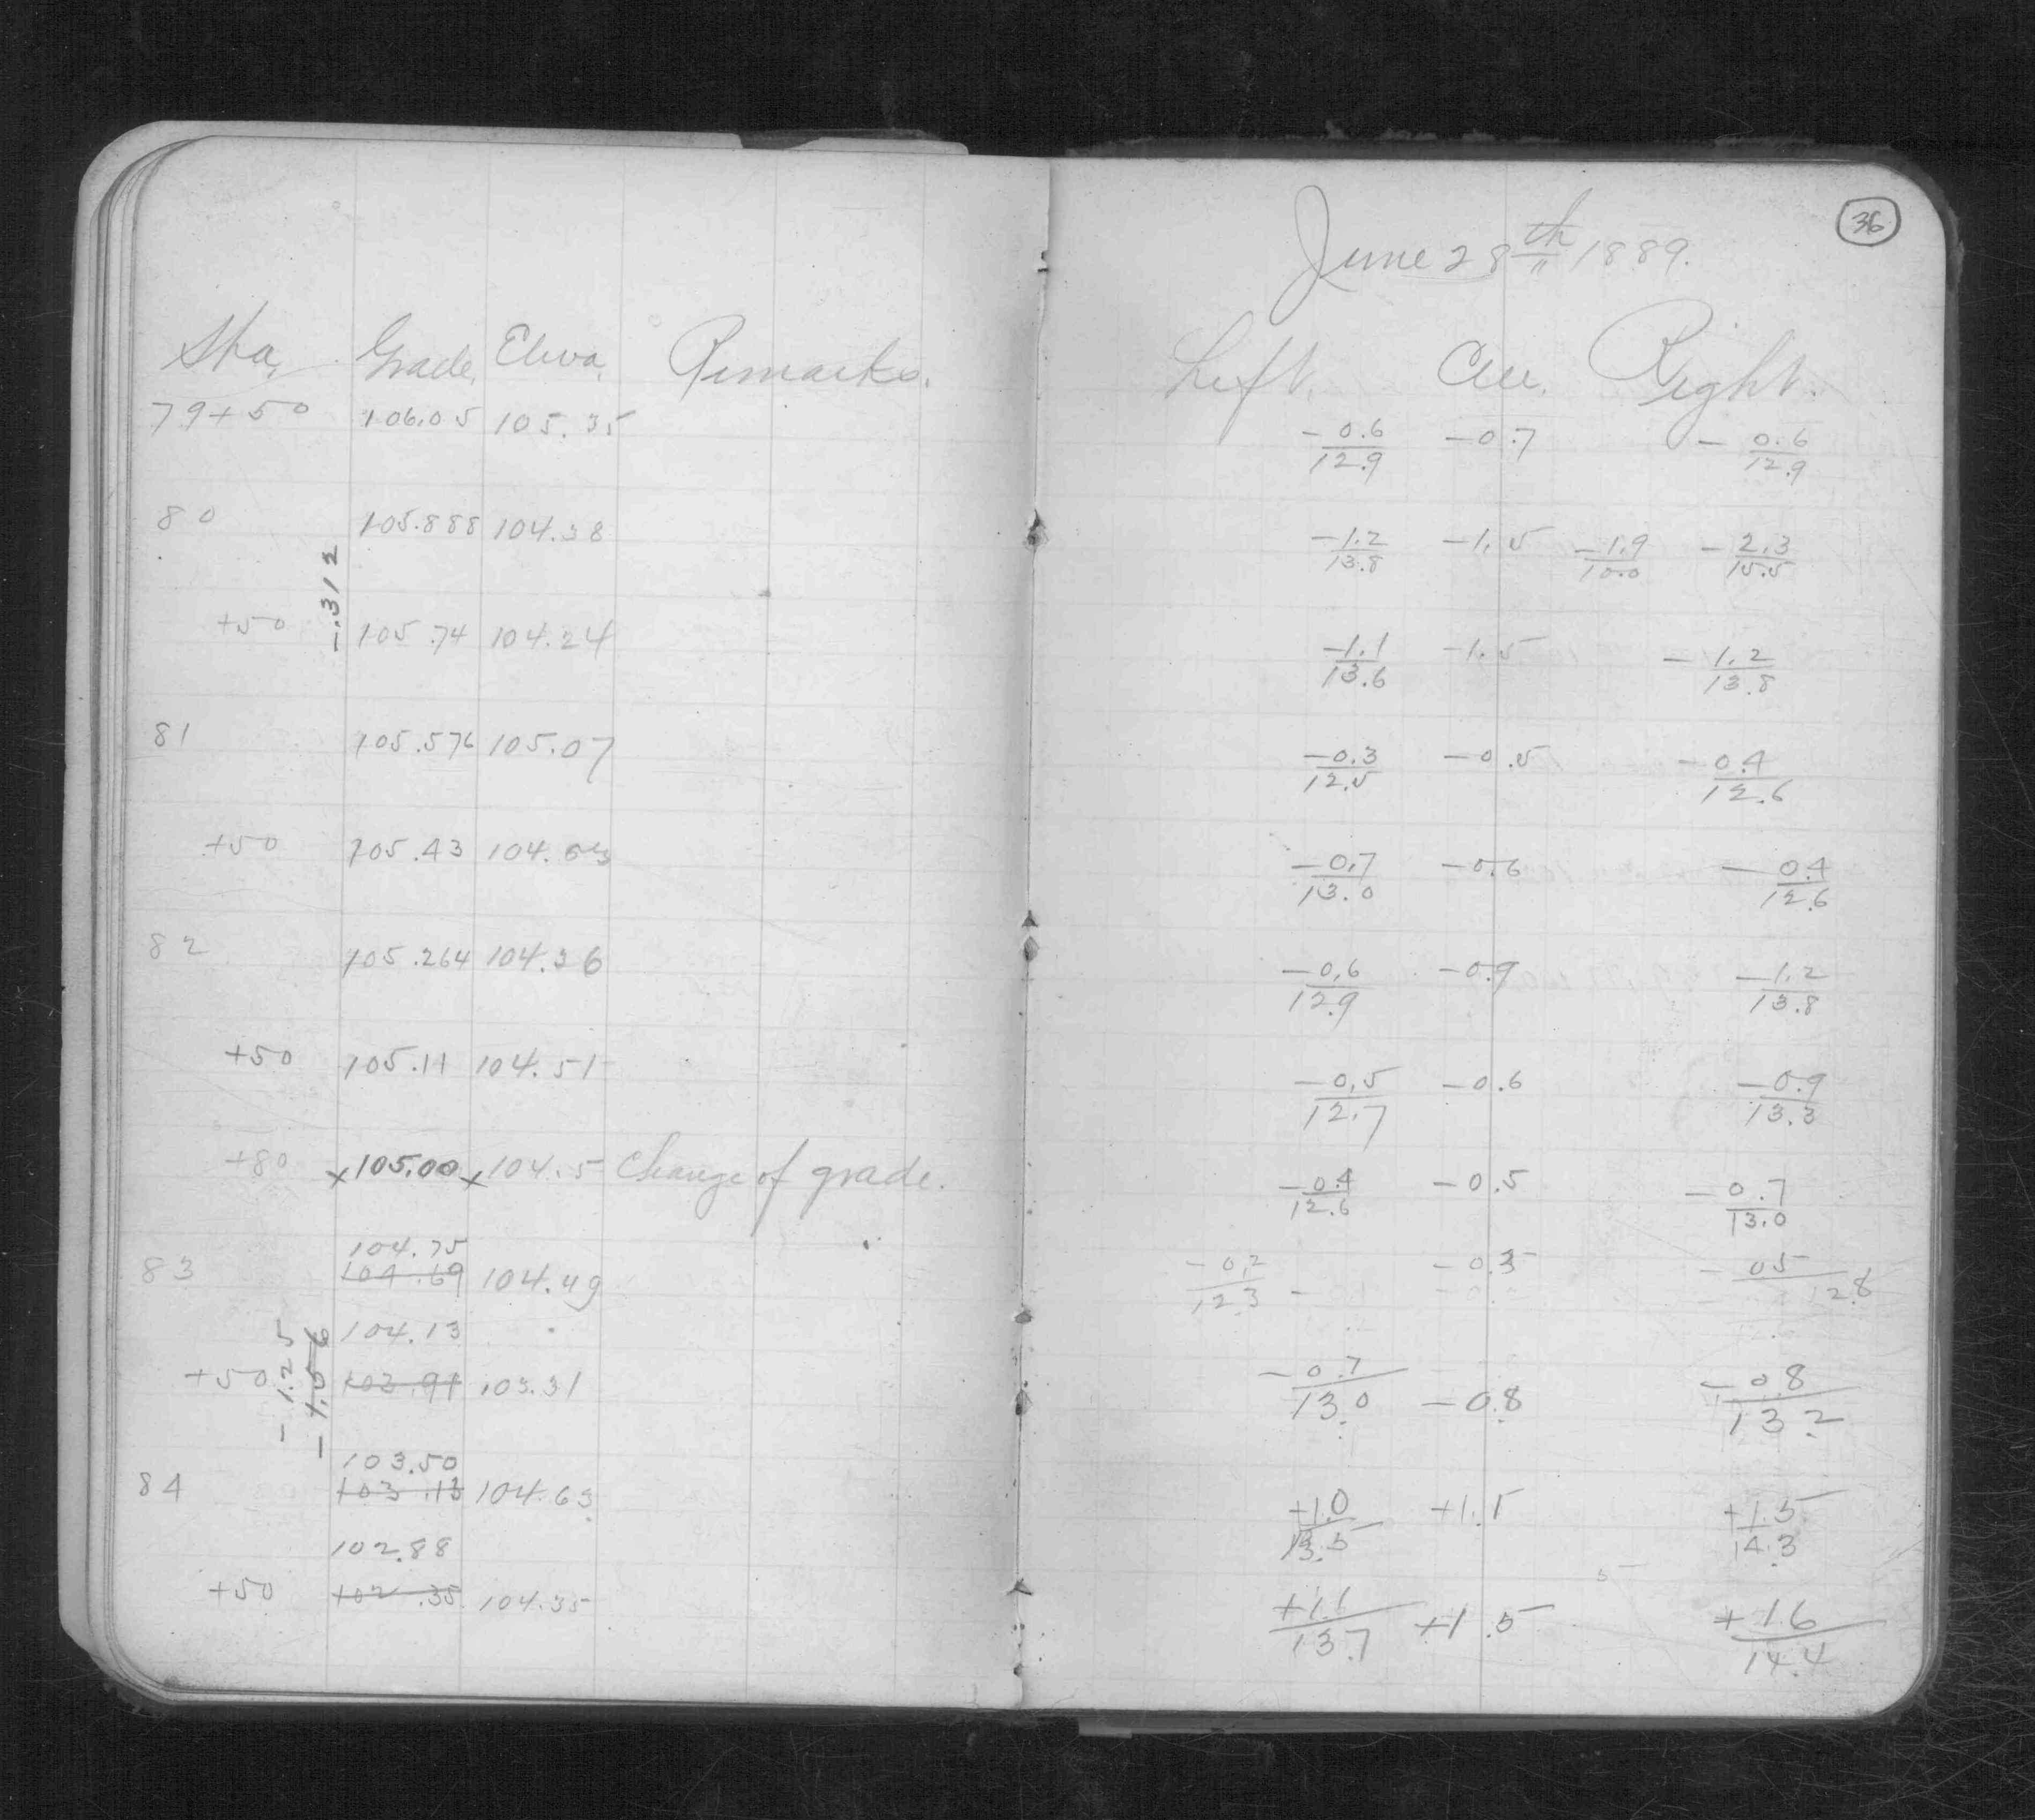 36
June 28th 1889.
Sta. Grade. Eleva. Remarks. Left. Cen. Right.
79+50 106.05 105.35 -0.6/12.9 -0.7 -0.6/12.9
80 105.888 104.38 -1.2/13.8 -1.5 -1.9/10.0 -2.3/15.5
-.312
+50 105.74 104.24 -1.1/13.6 -1.5 -1.2/13.8
81 105.576 105.07 -0.3/12.5 -0.5 -0.4/12.6
+50 105.43 -0.7/13.0 -0.6 -0.4/12.6
82 105.264 104.36 -0.6/12.9 -0.9 -1.2/13.8
+50 105.11 104.51 -0.5/12.7 -0.6 -0.9/13.3
+80 x105.00 x104.5 Change of grade. -0.4/12.6 -0.5 -0.7/13.0
104.75
83 104.69 104.49 -0.2/12.3 -0.3 -0.5/12.8
104.13
+50 103.91 103.31 -0.7/13.0 -0.8 -0.8/13.2
-1.25
-1.56
103.50
84 103.13 104.63 +1.0/13.5 +1.1 +1.5/14.3
102.88
+50 102.35 104.35 +1.1/13.7 +1.5 +1.6/14.4